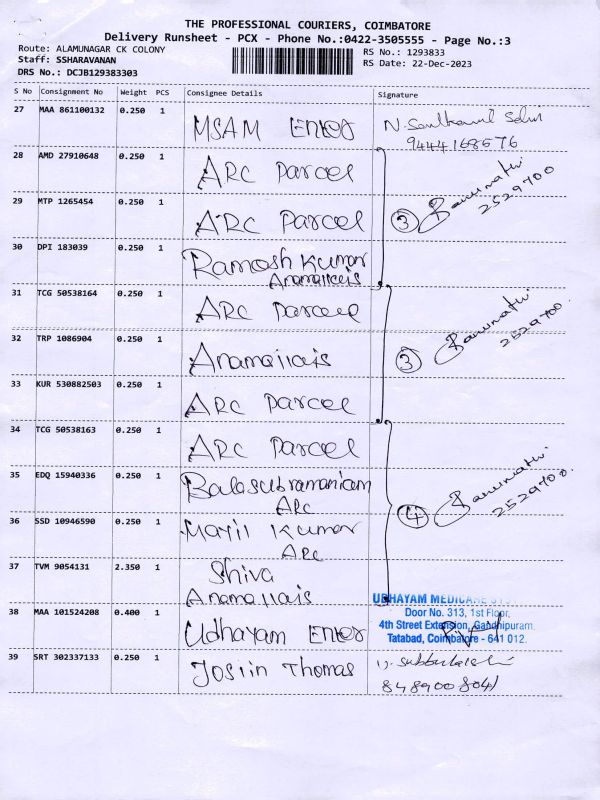 THE PROFESSIONAL COURIERS, COIMBATORE
Delivery Runsheet - PCX - Phone No.:0422-3505555 - Page No.:3
Route: ALAMUNAGAR CK COLONY
Staff: SSHARAVANAN
DRS No.: DCJB129383303
RS No.: 1293833
RS Date: 22-Dec-2023
S No Consignment No Weight PCS Consignee Details Signature
27 MAA 861100132 0.250 1 MSAM Enter
9444168676
28 AMD 27910648 0.250 1 ARC Parcel
29 MTP 1265454 0.250 1 ARC Parcel
③ Banumathi
2529700
30 DPI 183039 0.250 1 Ramesh Kumar
Anamallais
31 TCG 50538164 0.250 1 ARC Parcel
32 TRP 1086904 0.250 1 Anamallais
③ Banumathi
2529700
33 KUR 530882503 0.250 1 ARC Parcel
34 TCG 50538163 0.250 1 ARC Parcel
35 EDQ 15940336 0.250 1 Balasubramaniam
ARC
④ Banumathi
2529700
36 SSD 10946590 0.250 1 Mayil Kumar
ARC
37 TVM 9054131 2.350 1 Shiva
Anamallais
38 MAA 101524208 0.400 1 Udhayam Enter
UDHAYAM MEDICARE
Door No. 313, 1st Floor,
4th Street Extension, Gandhipuram
Tatabad, Coimbatore - 641 012.
39 SRT 302337133 0.250 1 Josiin Thomas
8489008041